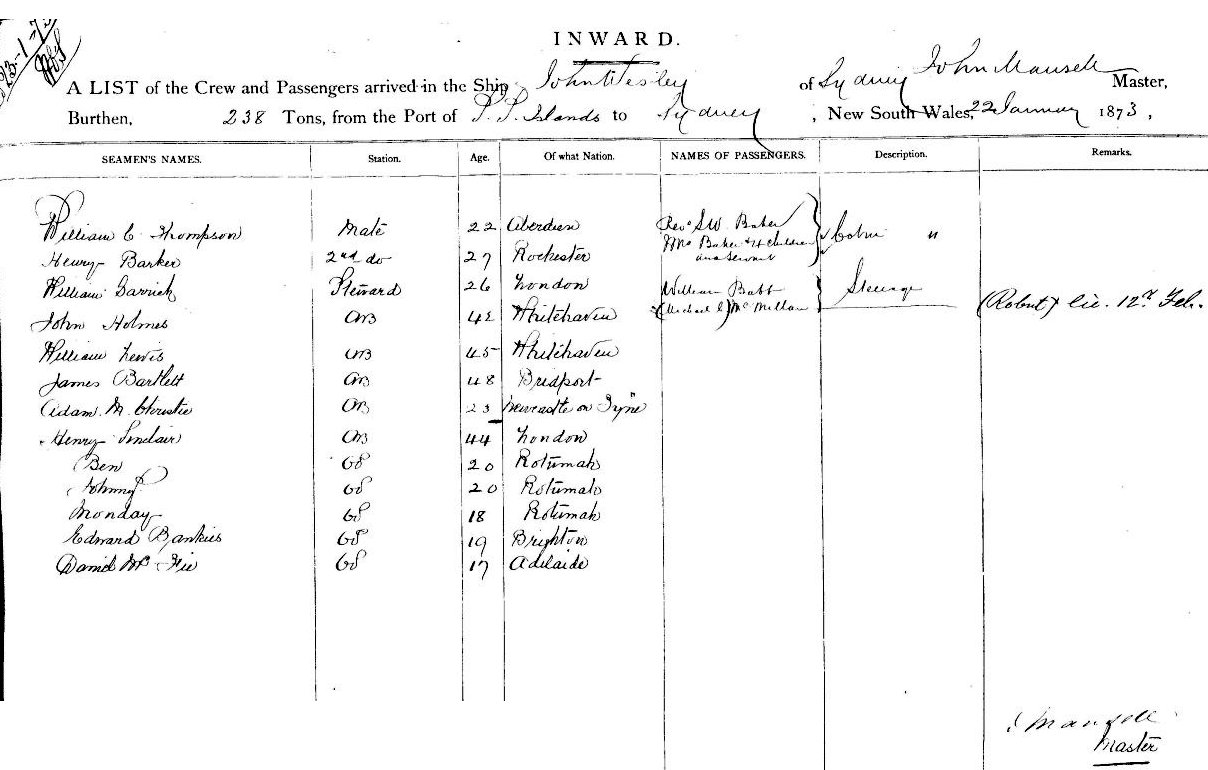 23-1-73
INWARD.
A LIST of the Crew and Passengers arrived in the Ship John Wesley of Sydney John Mansell Master,
Burthen, 238 Tons, from the Port of S. S. Islands to Sydney, New South Wales, 22 January 1873,
SEAMEN'S NAMES. Station. Age. Of what Nation. NAMES OF PASSENGERS. Description. Remarks.
William C Thompson Mate 22 Aberdeen Revd S W Baker Cabin "
Mrs Baker & 4 Children
Henry Barker 2nd do 27 Rochester and Servant
William Steward 26 London William Babb Steerage
John Holmes AB 42 Whitehaven (Michael C) McMillan (Robert) lic. 12th Feb.
William Lewis AB 45 Whitehaven
James Bartlett AB 48 Bridport
Adam M. Christie AB 23 Newcastle on Tyne
Henry Sinclair AB 44 London
Ben OS 20 Rotumah
Johnny OS 20 Rotumah
Monday OS 18 Rotumah
Edward OS 19 Brighton
Daniel OS 17 Adelaide
J Mansell
Master